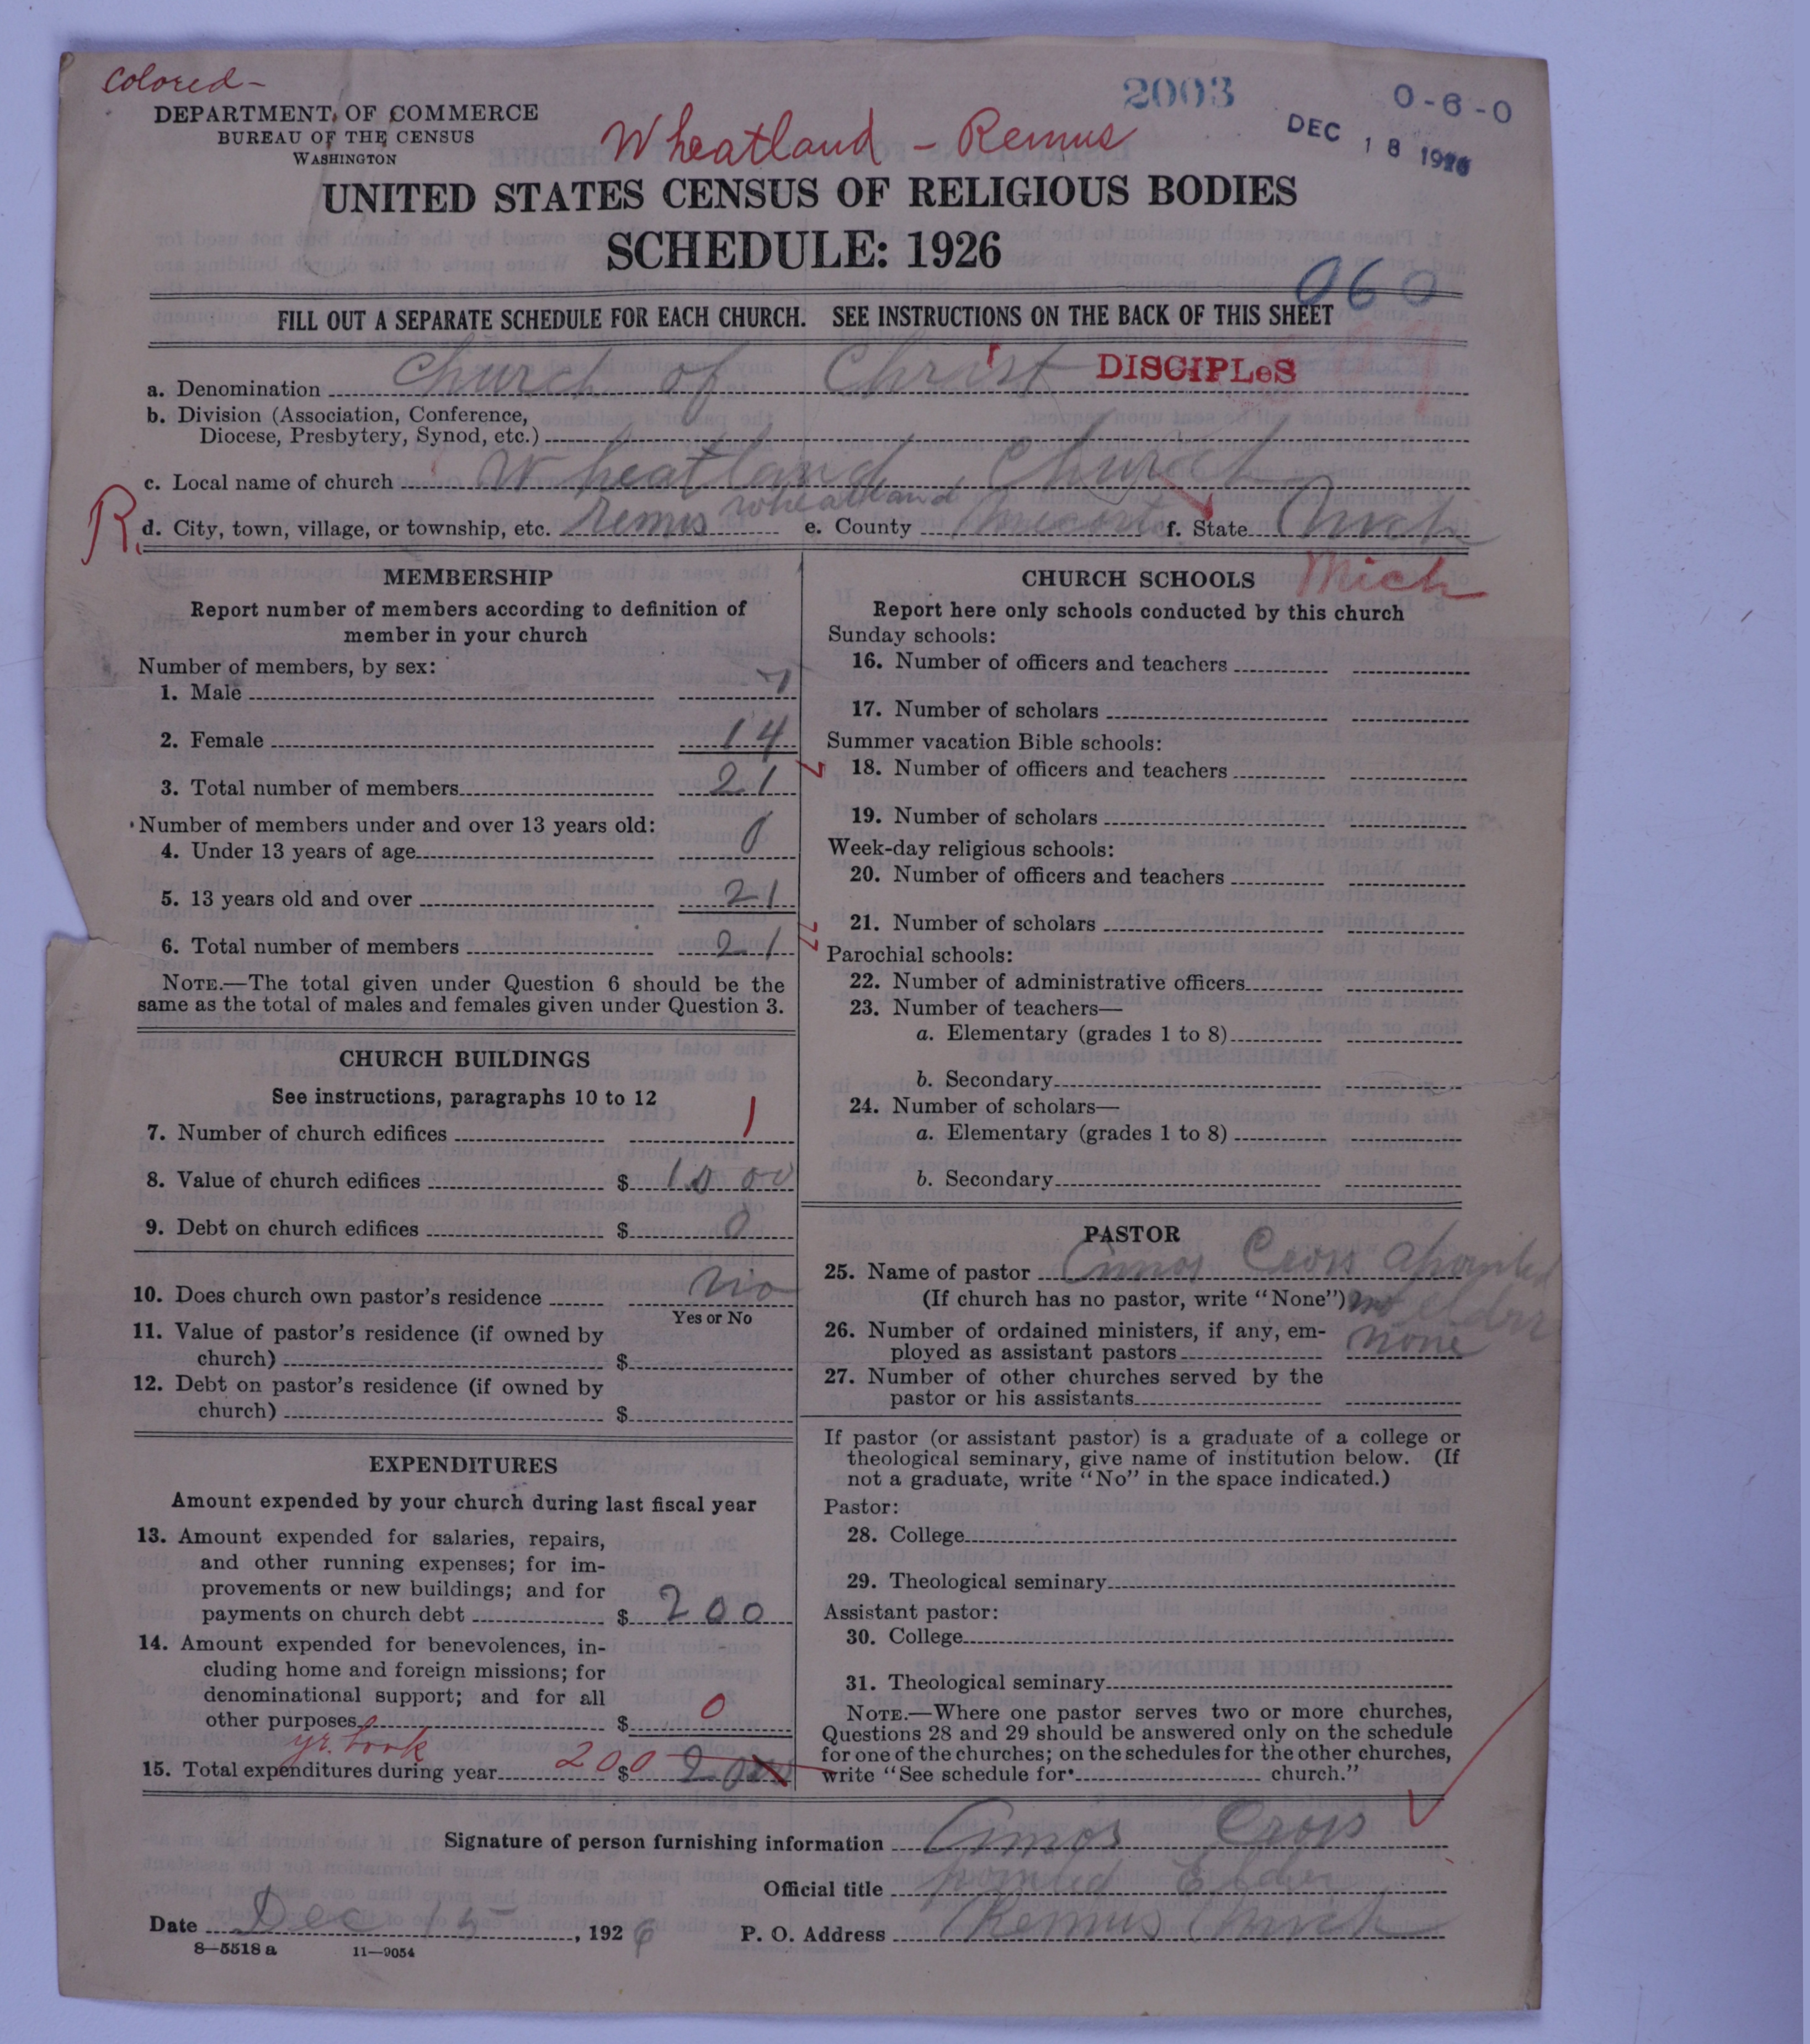 Colored-
2003
0-6-0
DEPARTMENT OF COMMERCE
BUREAU OF THE CENSUS
WASHINGTON
Wheatland - Remus
DEC 18 1926
UNITED STATES CENSUS OF RELIGIOUS BODIES
SCHEDULE: 1926
060
FILL OUT A SEPARATE SCHEDULE FOR EACH CHURCH. SEE INSTRUCTIONS ON THE BACK OF THIS SHEET
a. Denomination Church of Christ DISCIPLeS
b. Division (Association, Conference,
Diocese, Presbytery, Synod, etc.)
c. Local name of church Wheatland Church
R. d. City, town, village, or township, etc. Remus Wheatland e. County f. State Mich
MEMBERSHIP
Report number of members according to definition of
member in your church
Number of members, by sex:
1. Male 7
2. Female 14
3. Total number of members 21
Number of members under and over 13 years old:
4. Under 13 years of age 0
5. 13 years old and over 21
6. Total number of members 21
NOTE.—The total given under Question 6 should be the
same as the total of males and females given under Question 3.
CHURCH BUILDINGS
See instructions, paragraphs 10 to 12
7. Number of church edifices 1
8. Value of church edifices $ 1000
9. Debt on church edifices $ 0
10. Does church own pastor's residence No
Yes or No
11. Value of pastor's residence (if owned by
church) $
12. Debt on pastor's residence (if owned by
church) $
EXPENDITURES
Amount expended by your church during last fiscal year
13. Amount expended for salaries, repairs,
and other running expenses; for im-
provements or new buildings; and for
payments on church debt $ 200
14. Amount expended for benevolences, in-
cluding home and foreign missions; for
denominational support; and for all
other purposes $ 0
yr. book
15. Total expenditures during year 200 $ 200
CHURCH SCHOOLS Mich
Report here only schools conducted by this church
Sunday schools:
16. Number of officers and teachers
17. Number of scholars
Summer vacation Bible schools:
18. Number of officers and teachers
19. Number of scholars
Week-day religious schools:
20. Number of officers and teachers
21. Number of scholars
Parochial schools:
22. Number of administrative officers
23. Number of teachers—
a. Elementary (grades 1 to 8)
b. Secondary
24. Number of scholars—
a. Elementary (grades 1 to 8)
b. Secondary
PASTOR
25. Name of pastor Amos Cross
(If church has no pastor, write "None") elder
26. Number of ordained ministers, if any, em-
ployed as assistant pastors none
27. Number of other churches served by the
pastor or his assistants
If pastor (or assistant pastor) is a graduate of a college or
theological seminary, give name of institution below. (If
not a graduate, write "No" in the space indicated.)
Pastor:
28. College
29. Theological seminary
Assistant pastor:
30. College
31. Theological seminary
NOTE.—Where one pastor serves two or more churches,
Questions 28 and 29 should be answered only on the schedule
for one of the churches; on the schedules for the other churches,
write "See schedule for church."
Signature of person furnishing information Amos Cross
Official title pointed Elder
Date Dec 15, 1926 P. O. Address Remus Mich
8-5518 a 11-9054